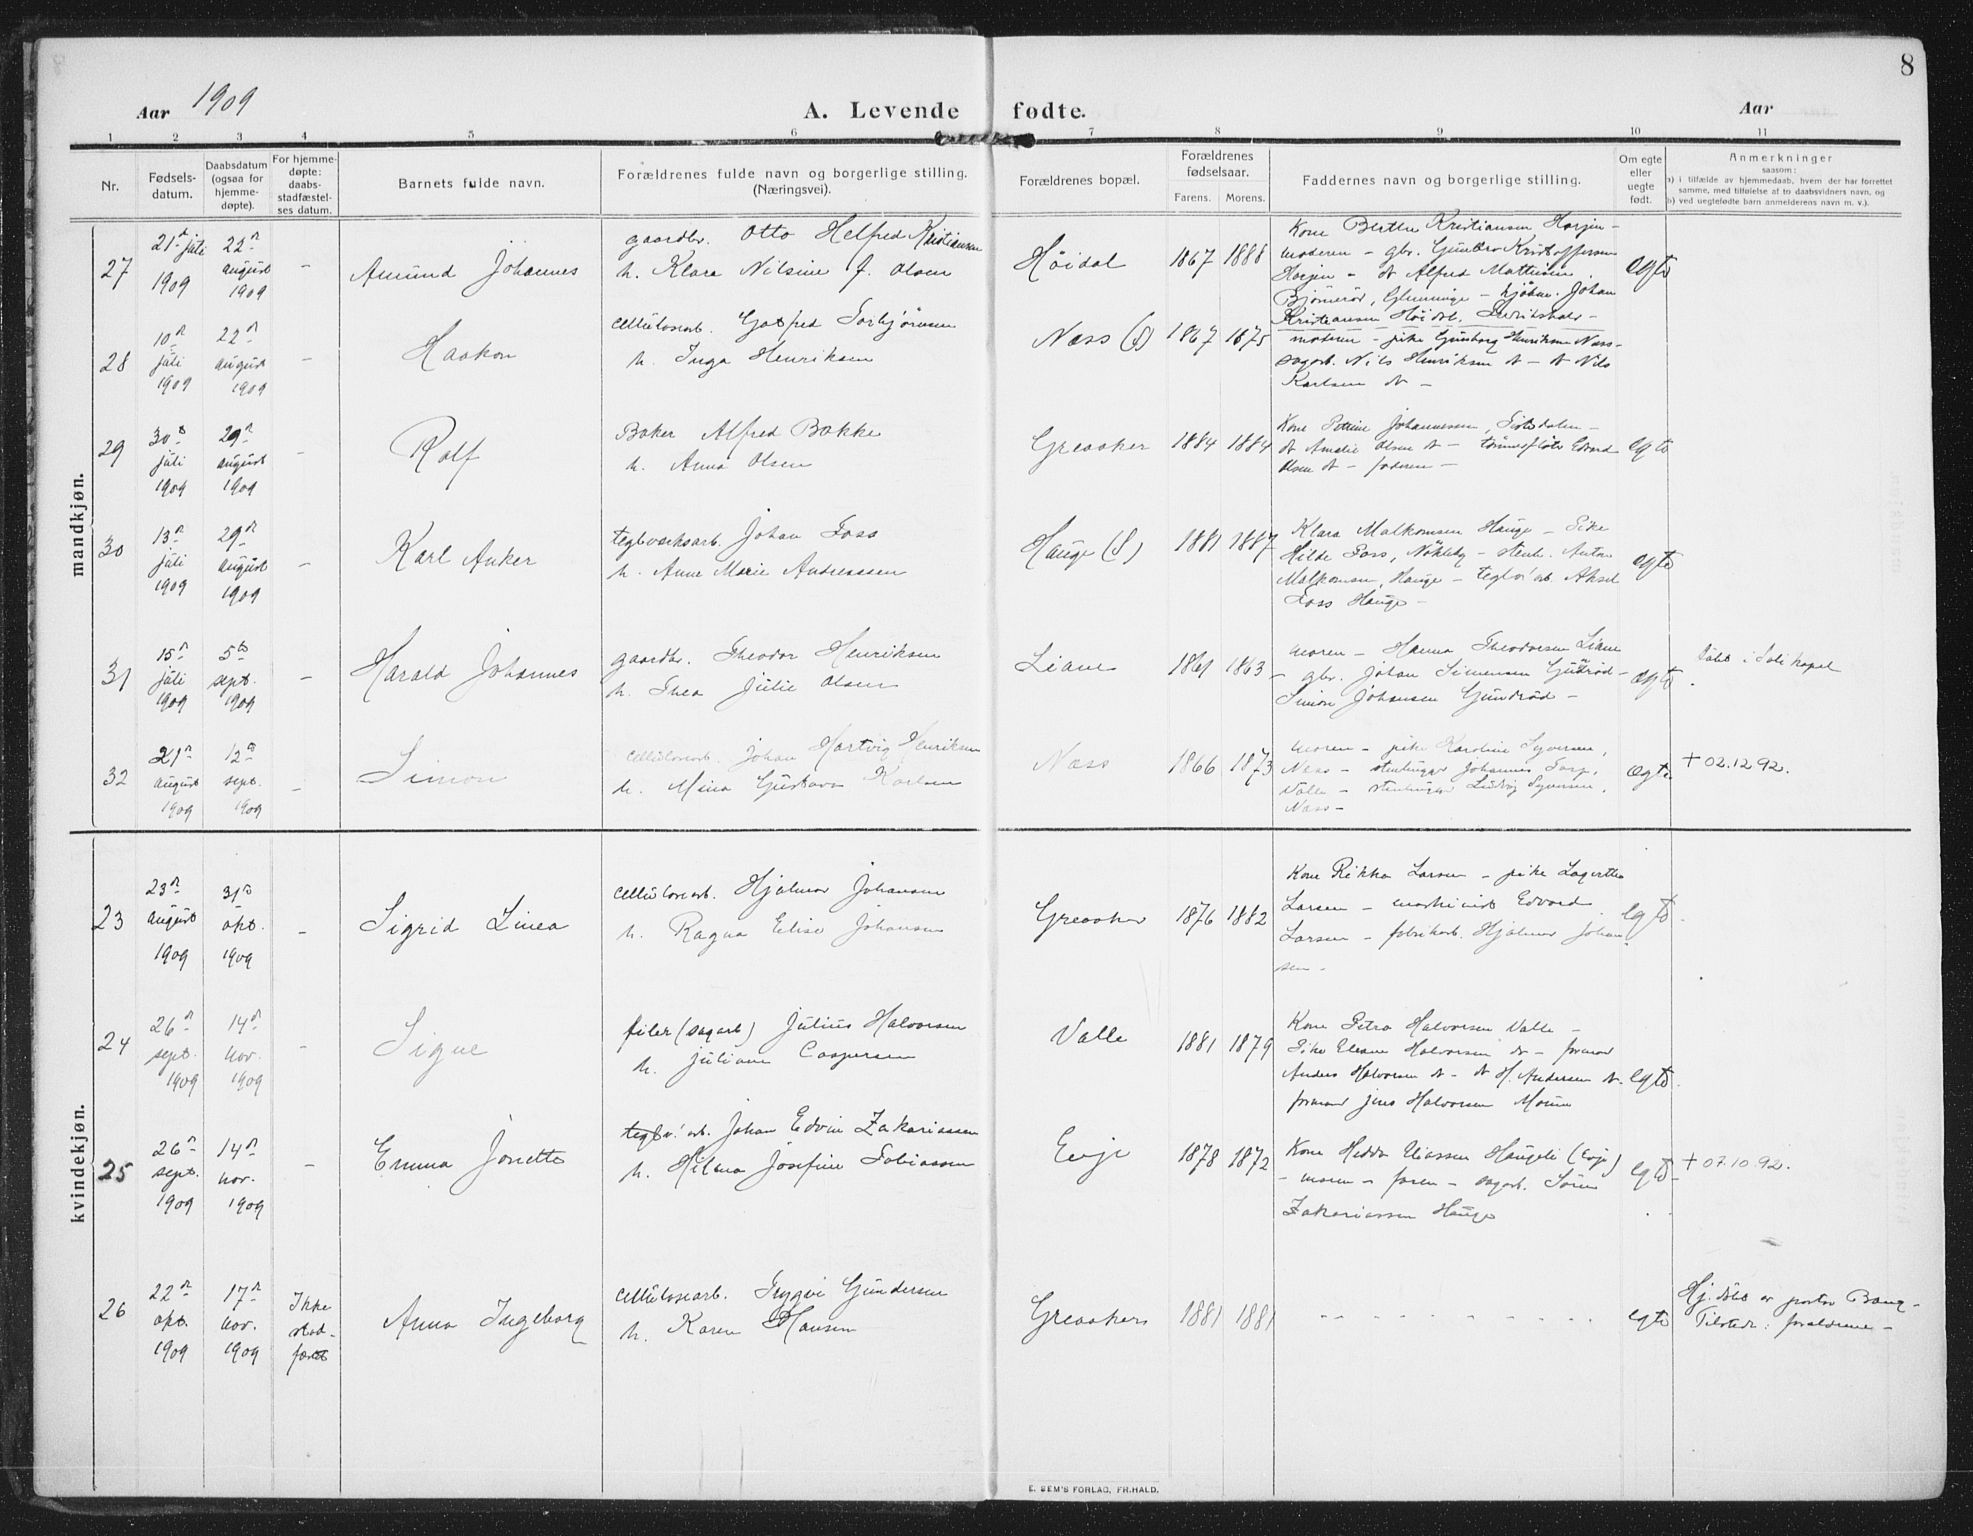 8
Aar 1909 A. Levende fødte. Aar
1 2 3 4 5 6 7 8 9 10 11
Nr.
Fødsels-
datum.
Daabsdatum
(ogsaa for
hjemme-
døpte).
For hjemme-
døpte:
daabs-
stadfæstel-
ses datum.
Barnets fulde navn.
Forældrenes fulde navn og borgerlige stilling.
(Næringsvei).
Forældrenes bopæl.
Forældrenes
fødselsaar.
Farens. Morens.
Faddernes navn og borgerlige stilling.
Om egte
eller
uegte
født.
Anmerkninger
saasom:
a) i tilfælde av hjemmedaab, hvem der har forrettet
samme, med tilføielse af to daabsvidners navn, og
b) ved uegtefødte barn anmelderens navn m. v.).
mandkjøn.
27
21de juli
1909
22de
august
1909
-
Amund Johannes
gaardbr. Otto Helfred Kristiansen
h. Klara Nilsine f. Olsen
Höidal
1867 1888
Kone Berthe Kristiansen
moderen - gbr. Kristoffersen
Alfred
Johan
Kristiansen Höidal.
egte
28
10de
juli
1909
22de
august
1909
-
Haakon
cellulosearb. Gotfred Torbjörnsen
h. Inga Henriksen
Næss
1867 1875
moderen - pike Henriksen Næss -
sagarb. Nils Henriksen st - st Nils
Karlsen st -
29
30te
juli
1909
29de
august
1909
-
Rolf
Baker Alfred Bakke
h. Anna Olsen
Greaaker
1884 1884
Kone Johannessen,
st Amalie Olsen st - tömmerfløter Edvard
Olsen st - faderen -
egte
30
13de
juli
1909
29de
august
1909
-
Karl Anker
teglverksarb. Johan Foss
h. Anne Marie Andreassen
Hauge (S)
1881 1887
Klara Malkomsen Hauge - Pike
Hilde Foss, Nökleby - stenh. Anton
Malkomsen, Hauge - teglv. arb. Aksel
Foss Hauge -
egte
31
15de
juli
1909
5te
sept.
1909
-
Harald Johannes
gaardbr. Theodor Henriksen
h. Thea Julie Olsen
Liane
1861 1863
moren - Hanna Theodorsen Liane
- gbr. Johan Simensen Gundröd -
Simon Johansen Gundröd -
egte
Döbt i Soli kapel
32
21de
august
1909
12te
sept.
1909
-
Simon
cellulosearb. Johan Hartvig Henriksen
h. Mina Gustava Karlsen
Næss
1866 1873
moren - pike Karoline Syversen,
Næss - stenhugger Johannes Torp,
Valle - stenhugger Ludvig Syversen,
Næss -
egte
+ 02.12.92.
kvindekjøn.
23
23de
august
1909
31te
okt.
1909
-
Sigrid Linea
cellulosearb. Hjalmar Johansen
h. Ragna Elise Johansen
Greaaker
1876 1882
Kone Rikka Larsen - pike Lagertha
Larsen - maskinist Edvard
Larsen - fabrikarb. Hjalmar Johan-
sen -
egte
24
26de
sept.
1909
14de
nov.
1909
-
Signe
filer (sagarb) Julius Halvorsen
h. Juliane Caspersen
Valle
1881 1879
Kone Petra Halvorsen Valle -
Pike Eleane Halvorsen st - formand
Anders Halvorsen st - st H. Andersen st.
formand Jens Halvorsen
egte
25
26de
sept.
1909
14de
nov.
1909
-
Emma Jonette
teglv. arb. Johan Edvin Zakariassen
h. Hilma Josefine Tobiassen
Evje
1878 1872
Kone Hedda Eliassen Haugeli (Evje)
- moren - faren - sagarb. Sören
Zakariassen Hauge
egte
+ 07.10.92.
26
22de
okt.
1909
17de
nov.
1909
Ikke
stad-
fæstet
Anna Ingeborg
cellulosearb. Trygve Gundersen
h. Karen Hansen
Greaaker
1881 1881
- - - - - - - - - -
egte
Hj. döbt av pastor Bang -
Tilstede: forældrene -
E. SEM'S FORLAG, FR.HALD.